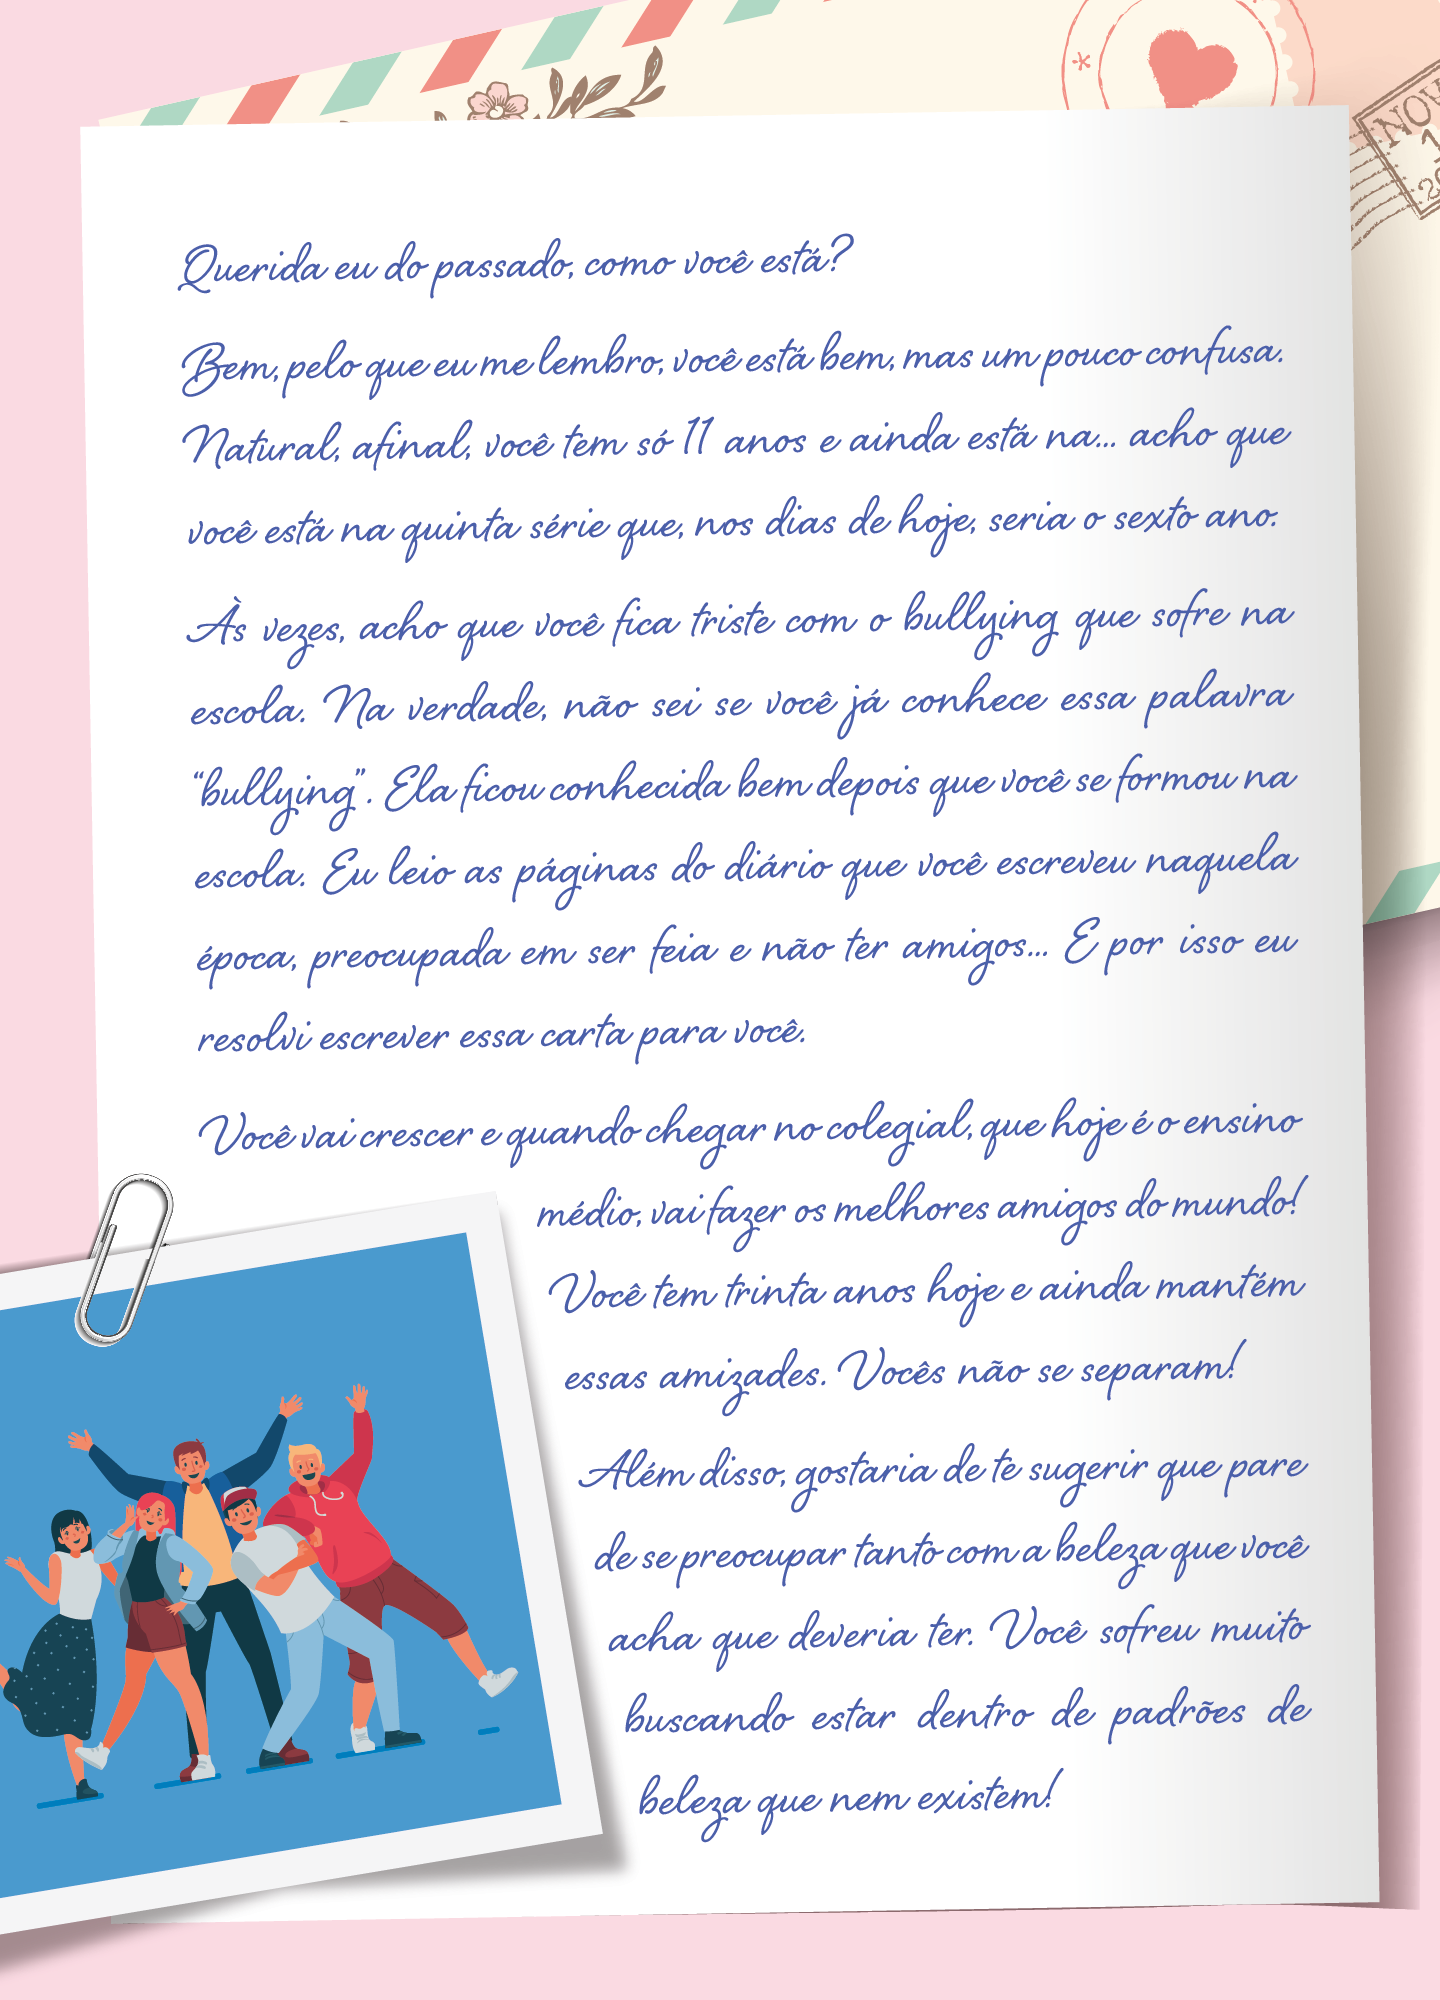 Querida eu do passado, como você está?
Bem, pelo que eu me lembro, você está bem, mas um pouco confusa.
Natural, afinal, você tem só 11 anos e ainda está na... acho que
você está na quinta série que, nos dias de hoje, seria o sexto ano.
Às vezes, acho que você fica triste com o bullying que sofre na
escola. Na verdade, não sei se você já conhece essa palavra
“bullying”. Ela ficou conhecida bem depois que você se formou na
escola. Eu leio as páginas do diário que você escreveu naquela
época, preocupada em ser feia e não ter amigos... E por isso eu
resolvi escrever essa carta para você.
Você vai crescer e quando chegar no colegial, que hoje é o ensino
médio, vai fazer os melhores amigos do mundo!
Você tem trinta anos hoje e ainda mantém
essas amizades. Vocês não se separam!
Além disso, gostaria de te sugerir que pare
de se preocupar tanto com a beleza que você
acha que deveria ter. Você sofreu muito
buscando estar dentro de padrões de
beleza que nem existem!